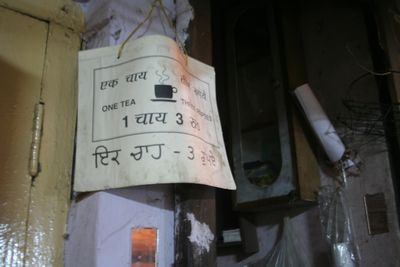 एक चाय तीन रुपये
ONE TEA THREE RUPEES
1 चाय 3 रु
ਇਕ ਚਾਹ - 3 ਰੁਪਏ